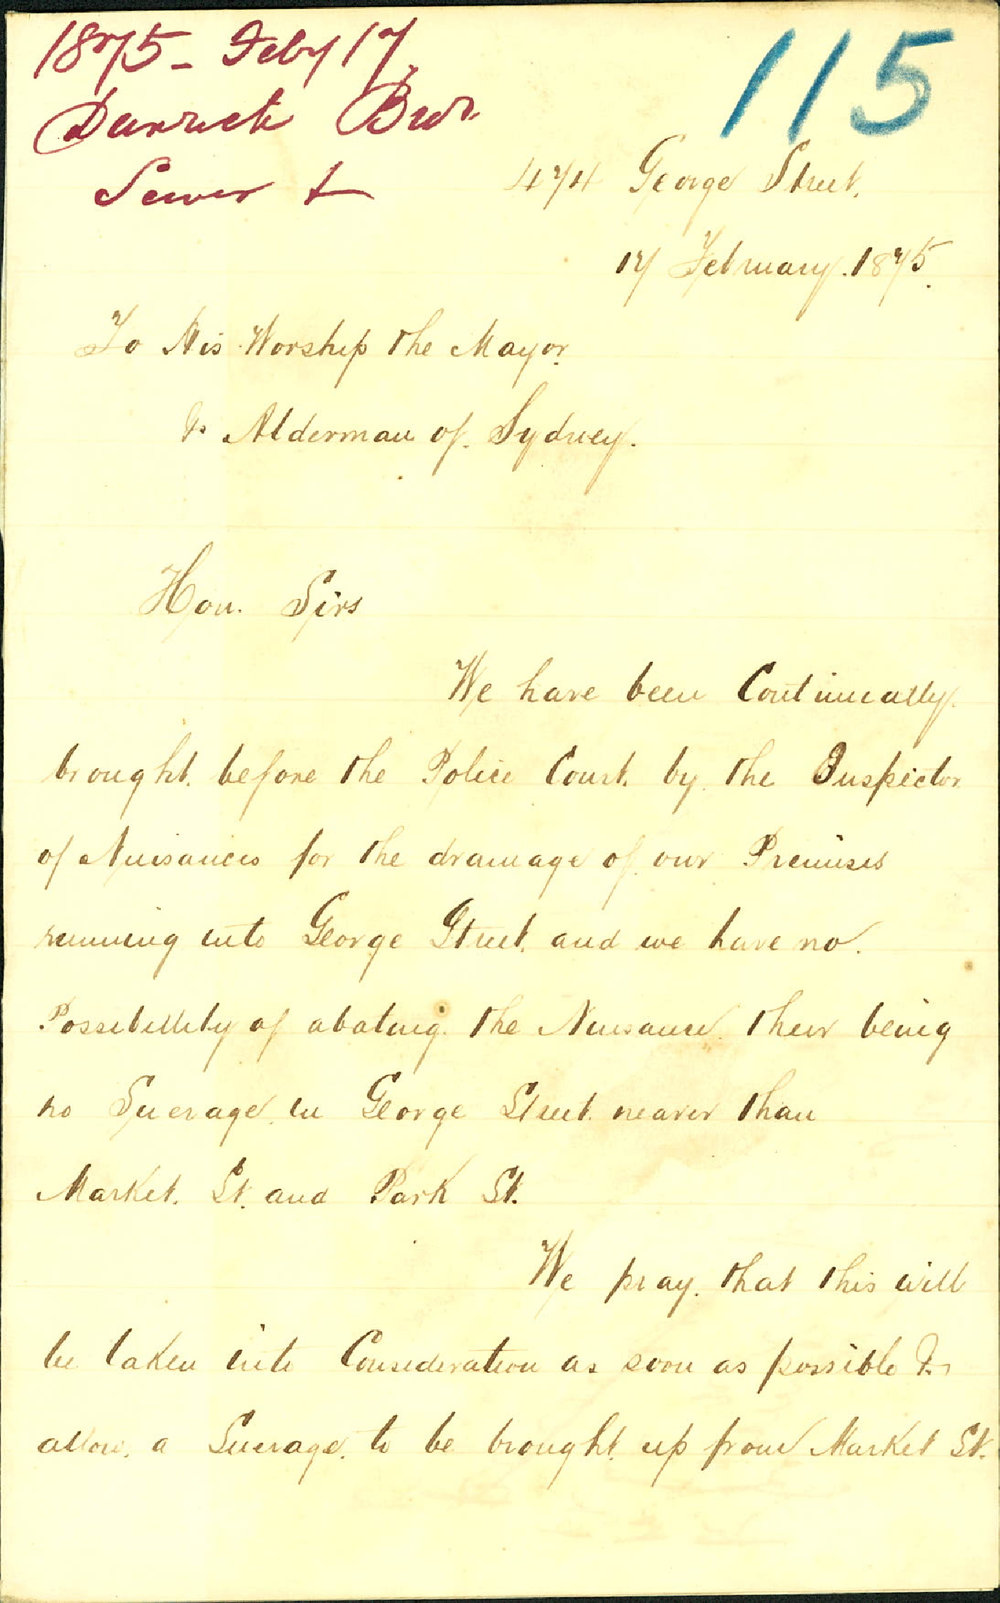 1875 - Feby 17
115
Bros.
Sewer
474 George Street.
17 February. 1875.
To His Worship the Mayor
& Alderman of Sydney.
Hon. Sirs
We have been Continually
brought before the Police Court by the Inspector
of Nuisances for the drainage of our Premises
running into George Street and we have no
Possibillity of abating the Nuisance their being
no Suerage in George Street nearer than
Market. St. and Park St.
We pray that this will
be taken into Consideration as soon as possible &
allow a Suerage to be brought up from Market St.